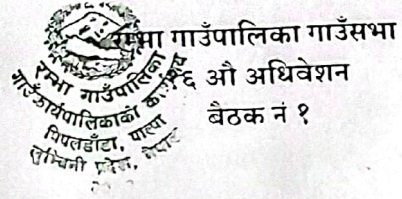 रम्भा गाउँपालिका गाउँसभा
१६ औ अधिवेशन
बैठक नं १
रम्भा गाउँपालिका
गाउँ कार्यपालिकाको कार्यालय
पिपलडाँडा, पाल्पा
लुम्बिनी प्रदेश, नेपाल